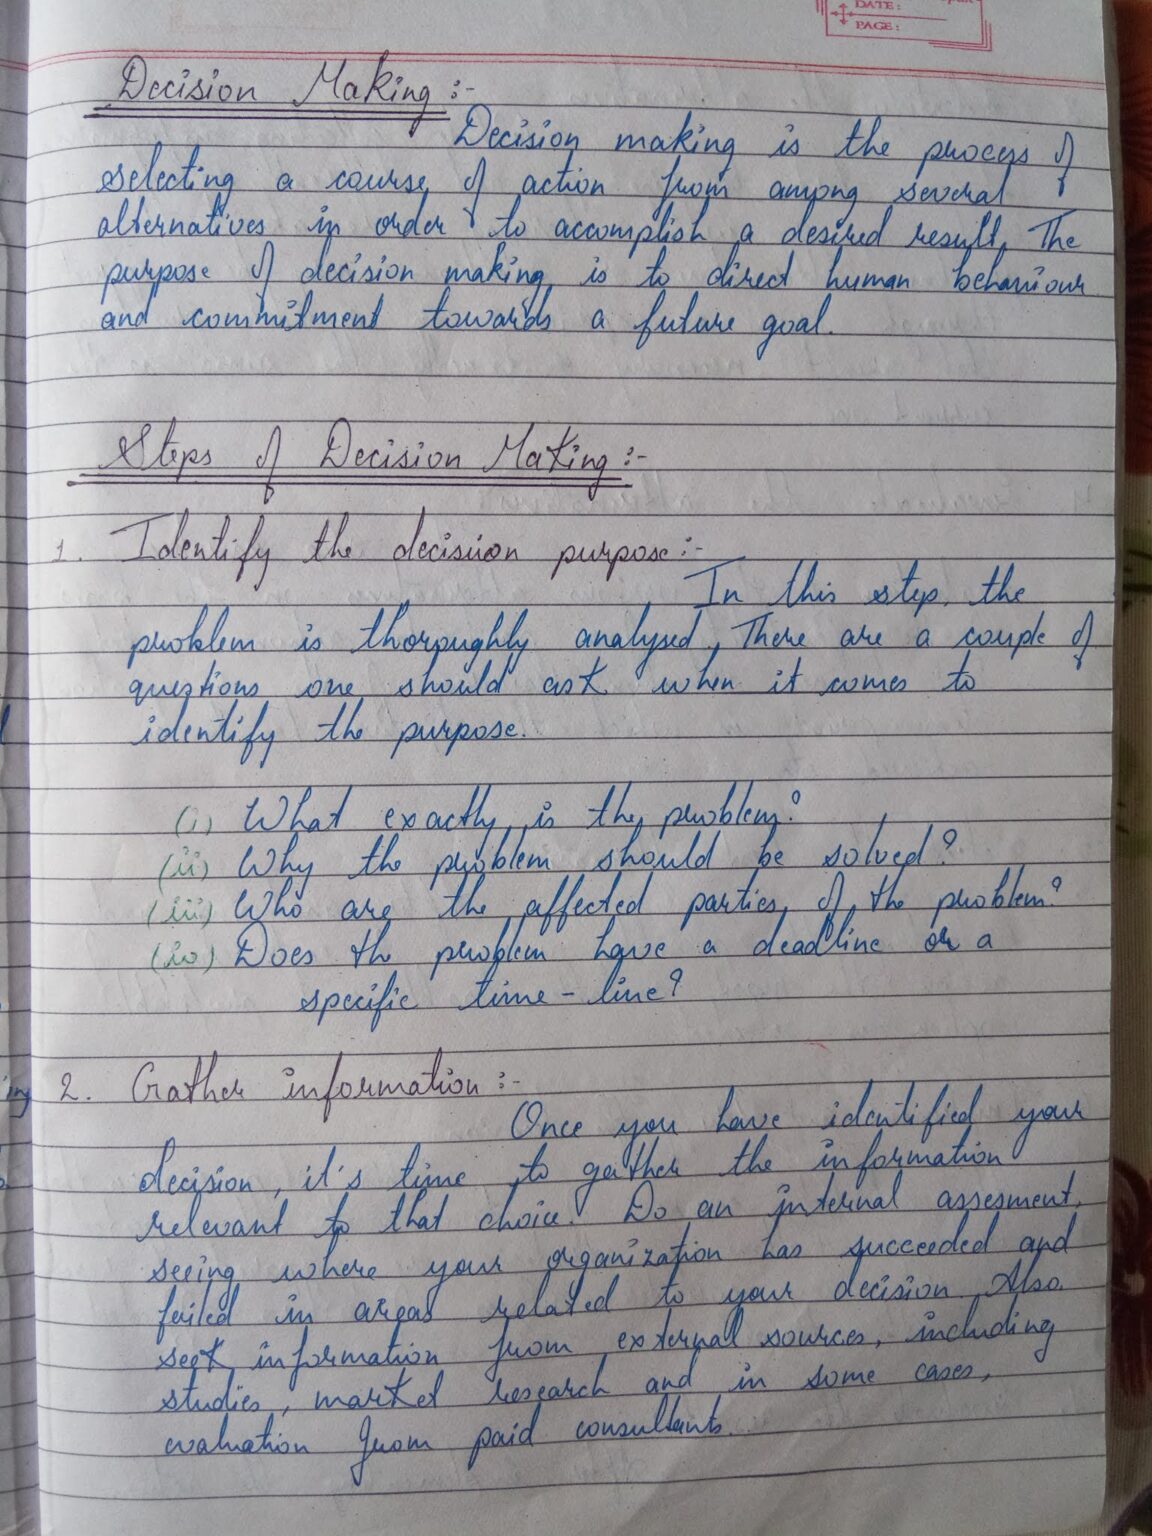 DATE:
PAGE:
Decision Making :-
Decision making is the process of
selecting a course of action from among several
alternatives in order to accomplish a desired result. The
purpose of decision making is to direct human behaviour
and commitment towards a future goal.
Steps of Decision Making :-
1. Identify the decision purpose :-
In this step, the
problem is thoroughly analysed. There are a couple of
questions one should ask when it comes to
identify the purpose.
(i) What exactly is the problem?
(ii) Why the problem should be solved?
(iii) Who are the affected parties of the problem?
(iv) Does the problem have a deadline or a
specific time-line?
2. Gather information :-
Once you have identified your
decision, it's time to gather the information
relevant to that choice. Do an internal assesment,
seeing where your organization has succeeded and
failed in areas related to your decision. Also
seek information from external sources, including
studies, market research and in some cases,
evaluation from paid consultants.